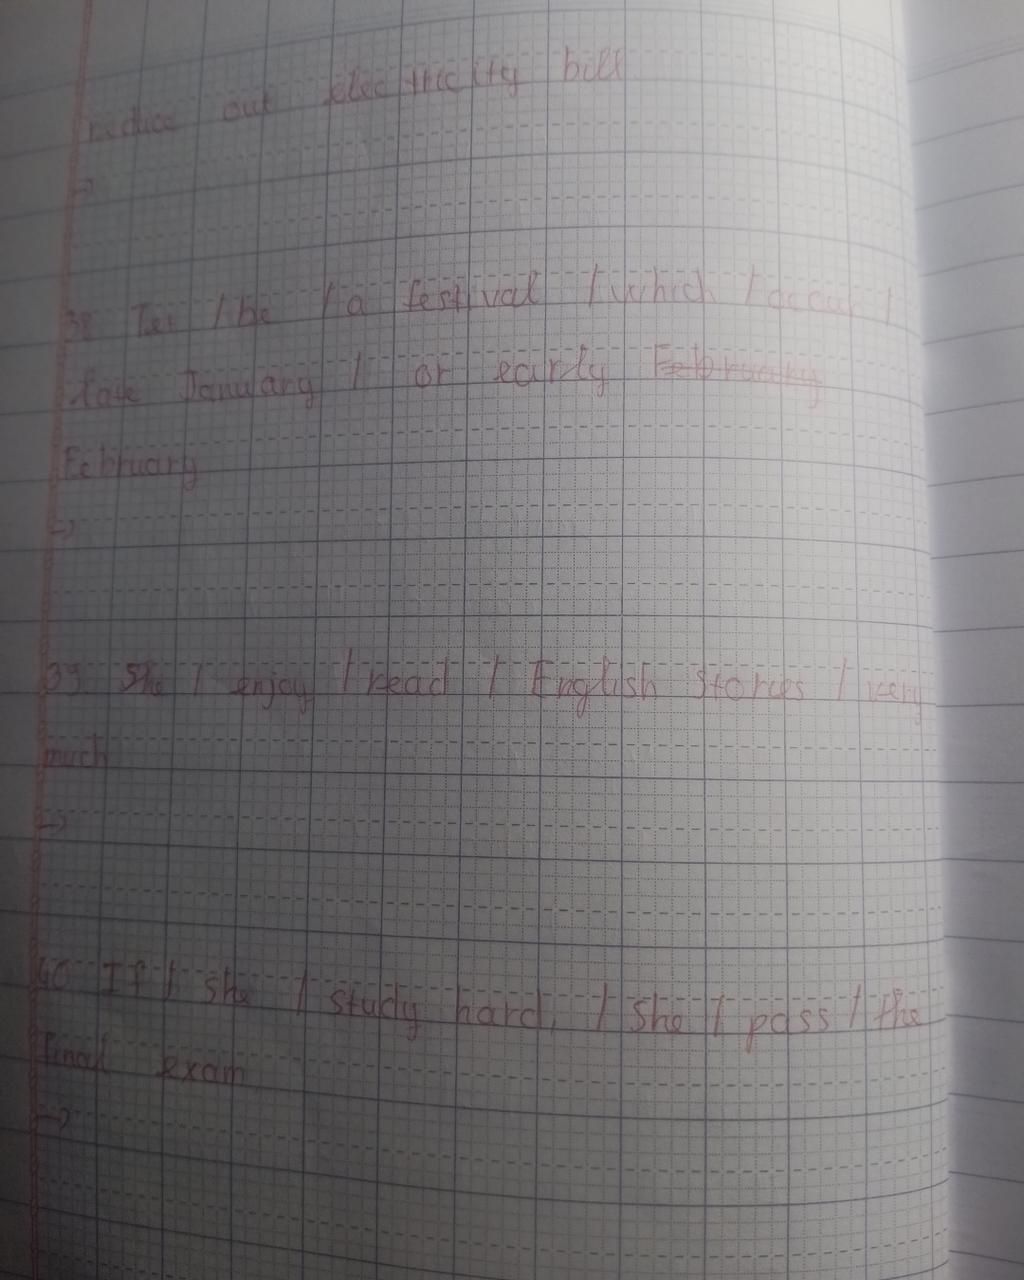 reduce out electricity bill
→
38 Tet / be / a festival / which / occur /
late January / or early February
February
→
39 She / enjoy / read / English stories / very
much
→
40 If / she / study hard, / she / pass / the
final exam
→